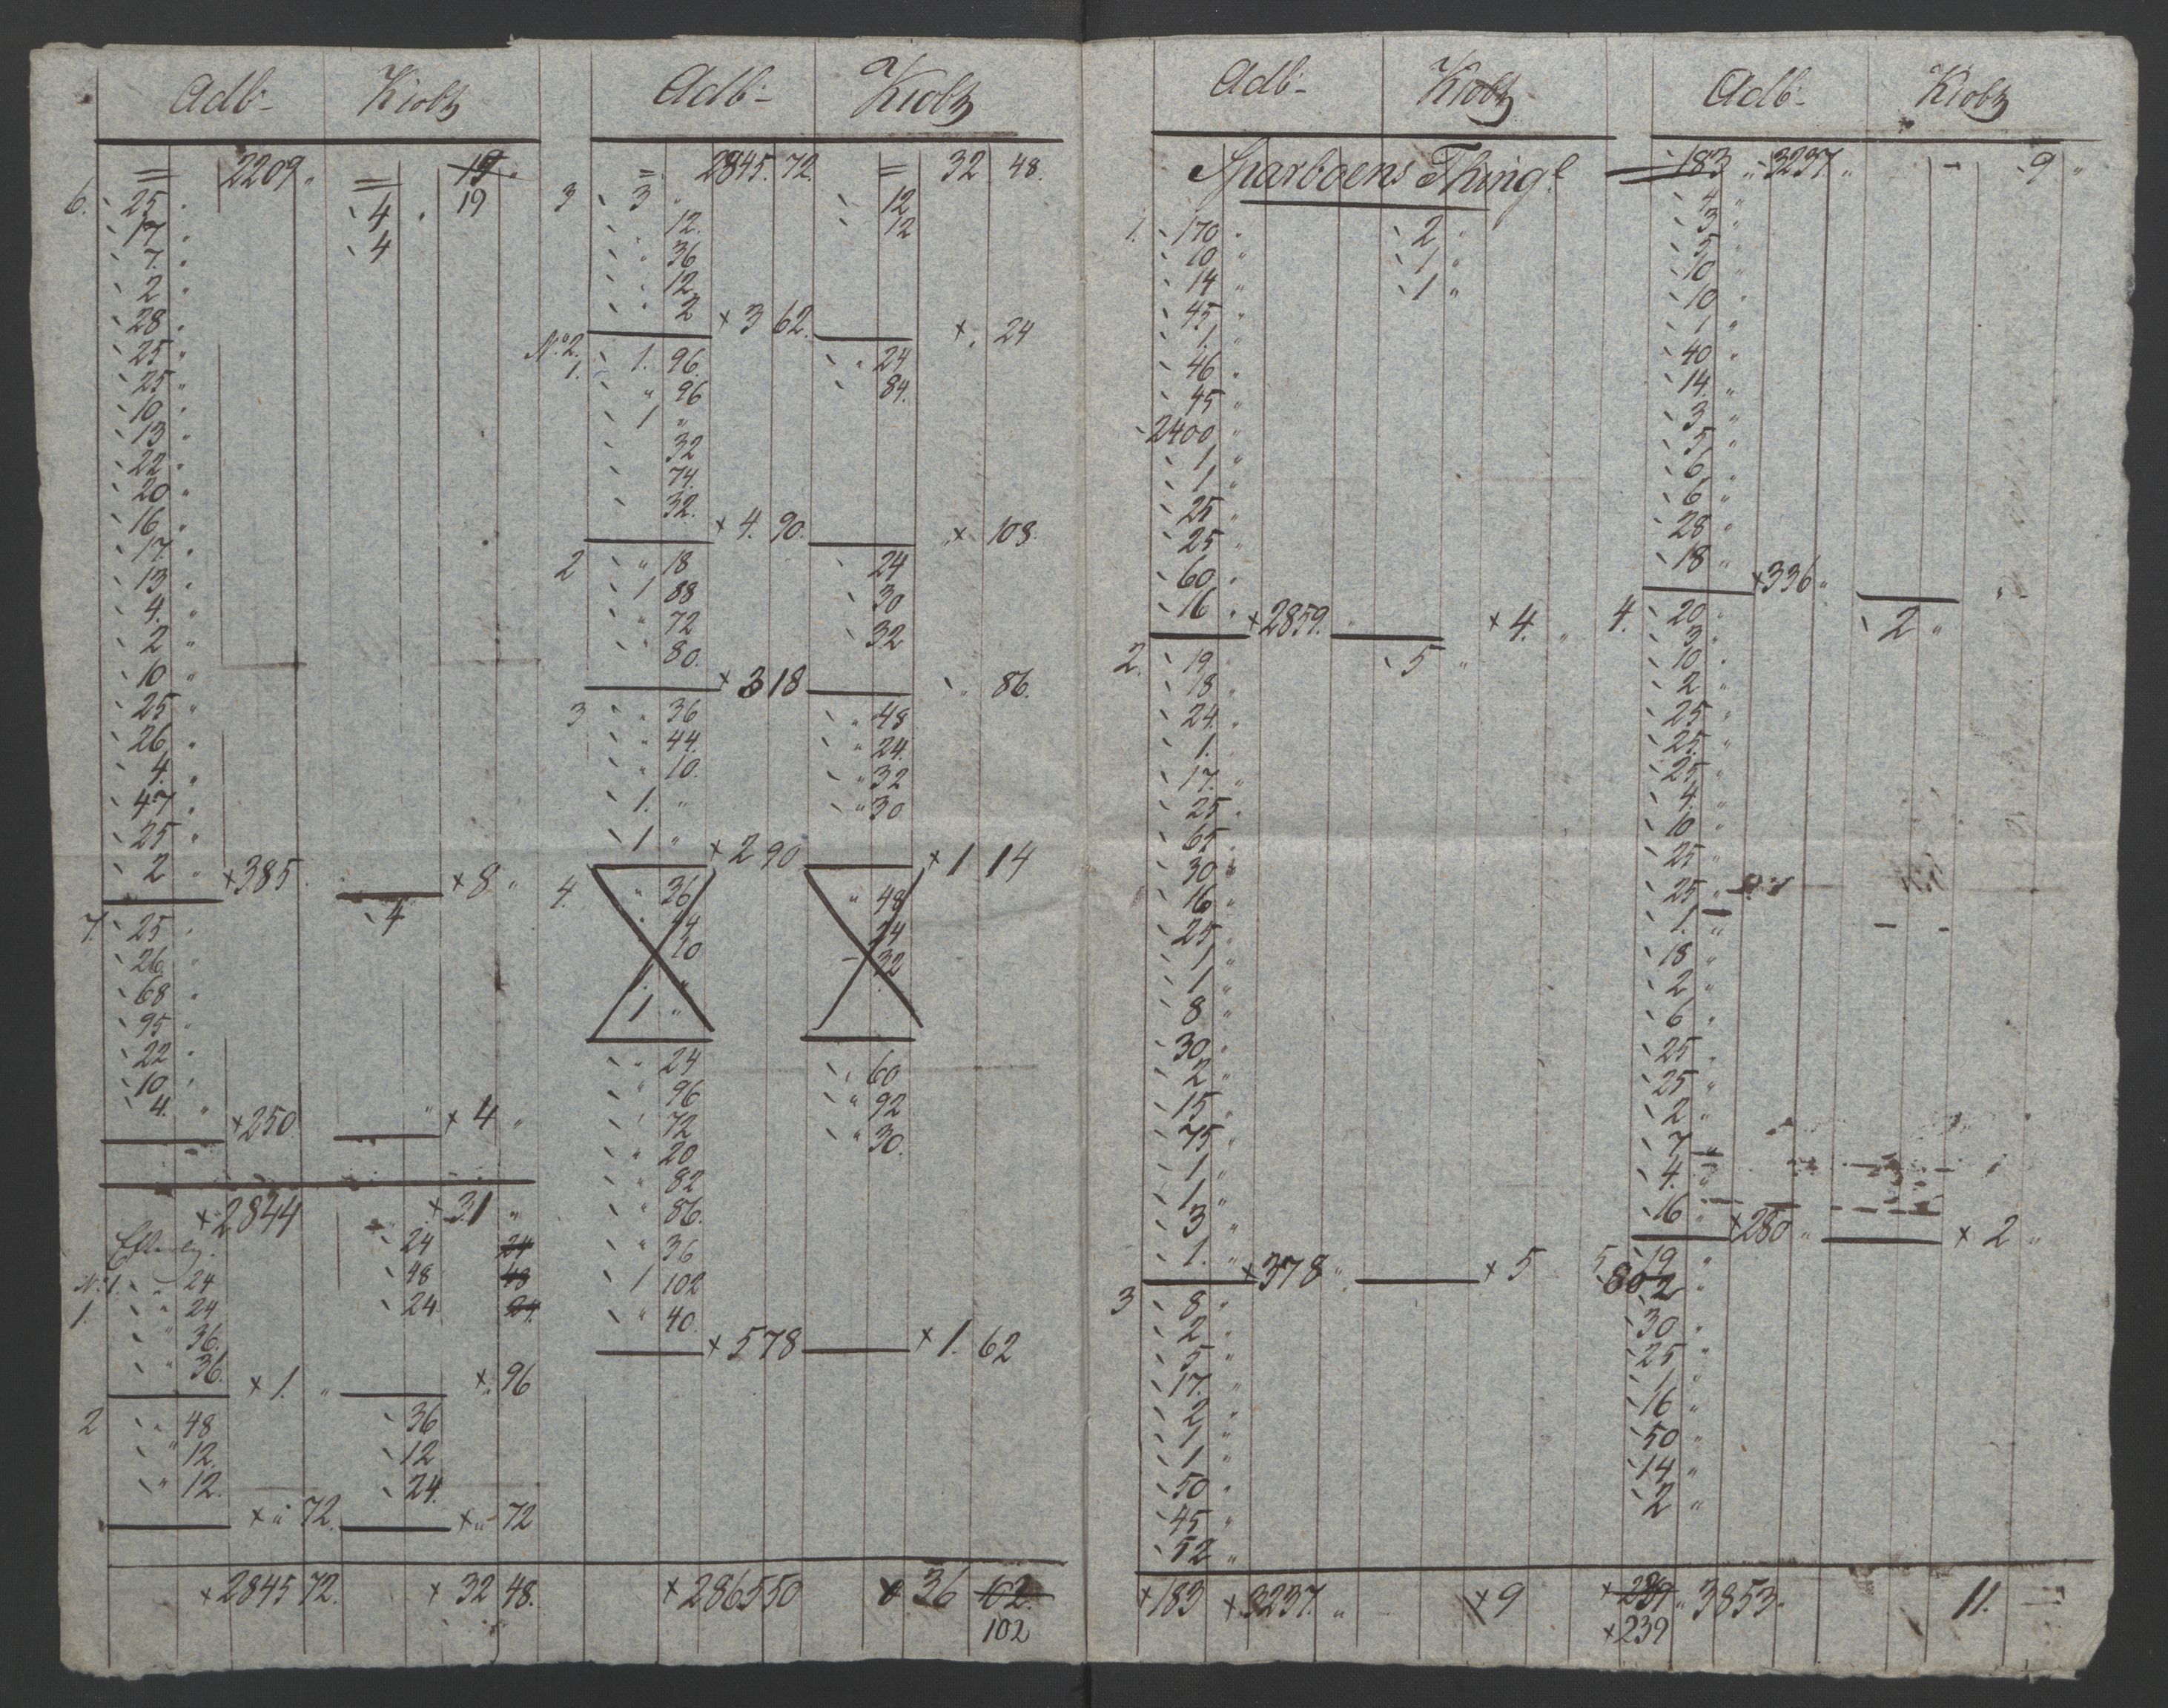 Adb- Kiobz
= 2209 " = 19
6. 25 " 4 " 19
17 " 4
7. "
2 "
28 "
25 "
25 "
10 "
13 "
22 "
20 "
16 "
17 "
13 "
4. "
2 "
10 "
25 "
26 "
4. "
47 "
25 "
2 " × 385. × 8 "
7. 25 " 4
26 "
68 "
95 "
22 "
10 "
4. " × 250 " × 4 "
× 2844 × 31 "
24 24
No 1. " 24 48 48
1. " 24 24 24
" 36.
" 36. × 1. " × " 96
2 " 48 36
" 12. 12
" 12. 24.
× " 72. × " 72
× 2845 72. × 32 48.
Adb- Kiobz
= 2845. 72. = 32. 48.
3 3 " 12
" 12. 12
" 36
" 12
" 2 × 3 62. × " 24
No 2.
1. 1. 96. " 24
" 96 84.
1 "
32
74.
32. × 4. 90. × 108.
2 " 18 24
1 88 30
" 72 32
" 80. × 3 18 " 86.
3 " 36 " 48
" 44. " 24.
" 10. " 32
1. " " 30
1 " × 2 90 × 1 14
4. " 36 " 48
44 24
10 32
1. "
1 "
" 24 " 60
" 96 " 92
" 72 " 30.
" 20
" 82
" 86.
" 36
1 102
" 40. × 5 78 × 1. 62
× 2865 50 × 36 102.
102
Adb- Kiobz
Sparboens Thingl
1. 170 " 2 "
10 " 1 "
14 " 1 "
45 "
1. "
46 "
45 "
2400 "
1 "
1 "
25 "
25 "
60 "
16 " × 2859. × 4. "
2. 19 " 5 "
18 "
24. "
1. "
17. "
25 "
65 "
30 "
16 "
25 "
1 "
1 "
8 "
30 "
2 "
15 "
75 "
1 "
1 "
3 "
1. " × 378 " × 5
3 8 "
2 "
5 "
17. "
2 "
1 "
1 "
50 "
45 "
52 "
× 183 × 3237. " × 9
Adb- Kiobz
183 " 3237 " - 9 "
4 "
3 "
5 "
10 "
10 "
1 "
40 "
14. "
3 "
5 "
6 "
6 "
28 "
18 " × 336 " "
4. 20 " 2 "
3 "
10 "
2 "
25 "
25. "
25 "
4. "
10 "
25 "
25 "
1. "
18 "
2 "
6 "
25 "
25 "
2 "
7 "
4. "
16 " × 280 " × 2 "
5 19 "
80 2 "
30 "
25 "
1 "
16 "
50 "
14 "
2 "
× 289 " 3853 " 11.
× 239